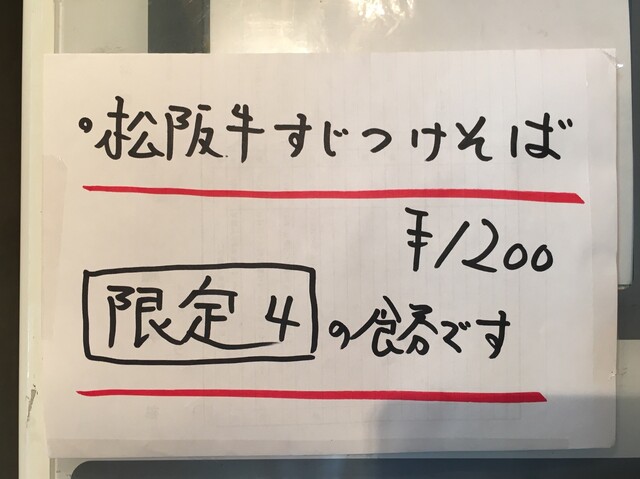 。松阪牛すじつけそば
¥1200
限定4の食呑です